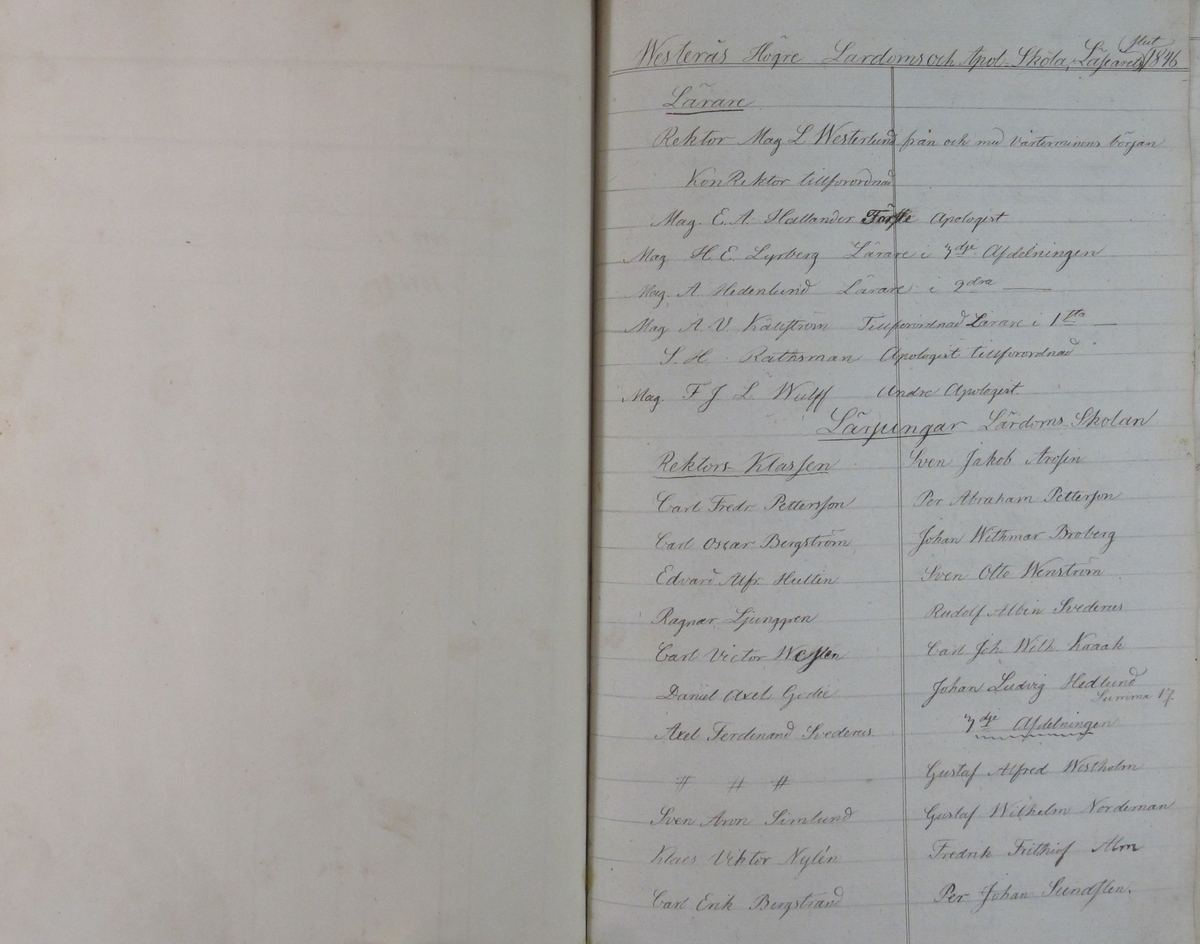 Westerås Högre Lärdoms och Apol. Skola, Läsåret slut 1846
Lärare
Rektor Mag L Westerlund från och med Vårterminens början
KonRektor tillförordnad
Mag. E. A. Hallander Förste Apologist
Mag H. E. Lyrberg Lärare i 3dje Afdelningen
Mag. A Hedenlund Lärare i 2dra —
Mag A. V. Källström Tillförordnad Lärare i 1sta —
S. H. Rathsman Apologist tillförordnad
Mag. F J L Wulff Andre Apologist.
Lärjungar Lärdoms Skolan
Rektors Klassen
Carl Fredr. Pettersson
Carl Oscar Bergström
Edvard Alfr. Hullin
Ragnar Ljunggren
Carl Victor Westen
Daniel Axel Gedie
Axel Ferdinand Svederus
# # #
Sven Aron Simlund
Klaes Viktor Nylén
Carl Erik Bergstrand
Sven Jakob Arosin
Per Abraham Petterson
Johan Withmar Broberg
Sven Otto Wenström
Rudolf Albin Svederus
Carl Joh. Wilh. Kaaak
Johan Ludvig Hedlund
Summa 17.
3dje Afdelningen
Gustaf Alfred Westholm
Gustaf Wilhelm Nordeman
Fredrik Frithiof Alm
Per Johan Sundsten.